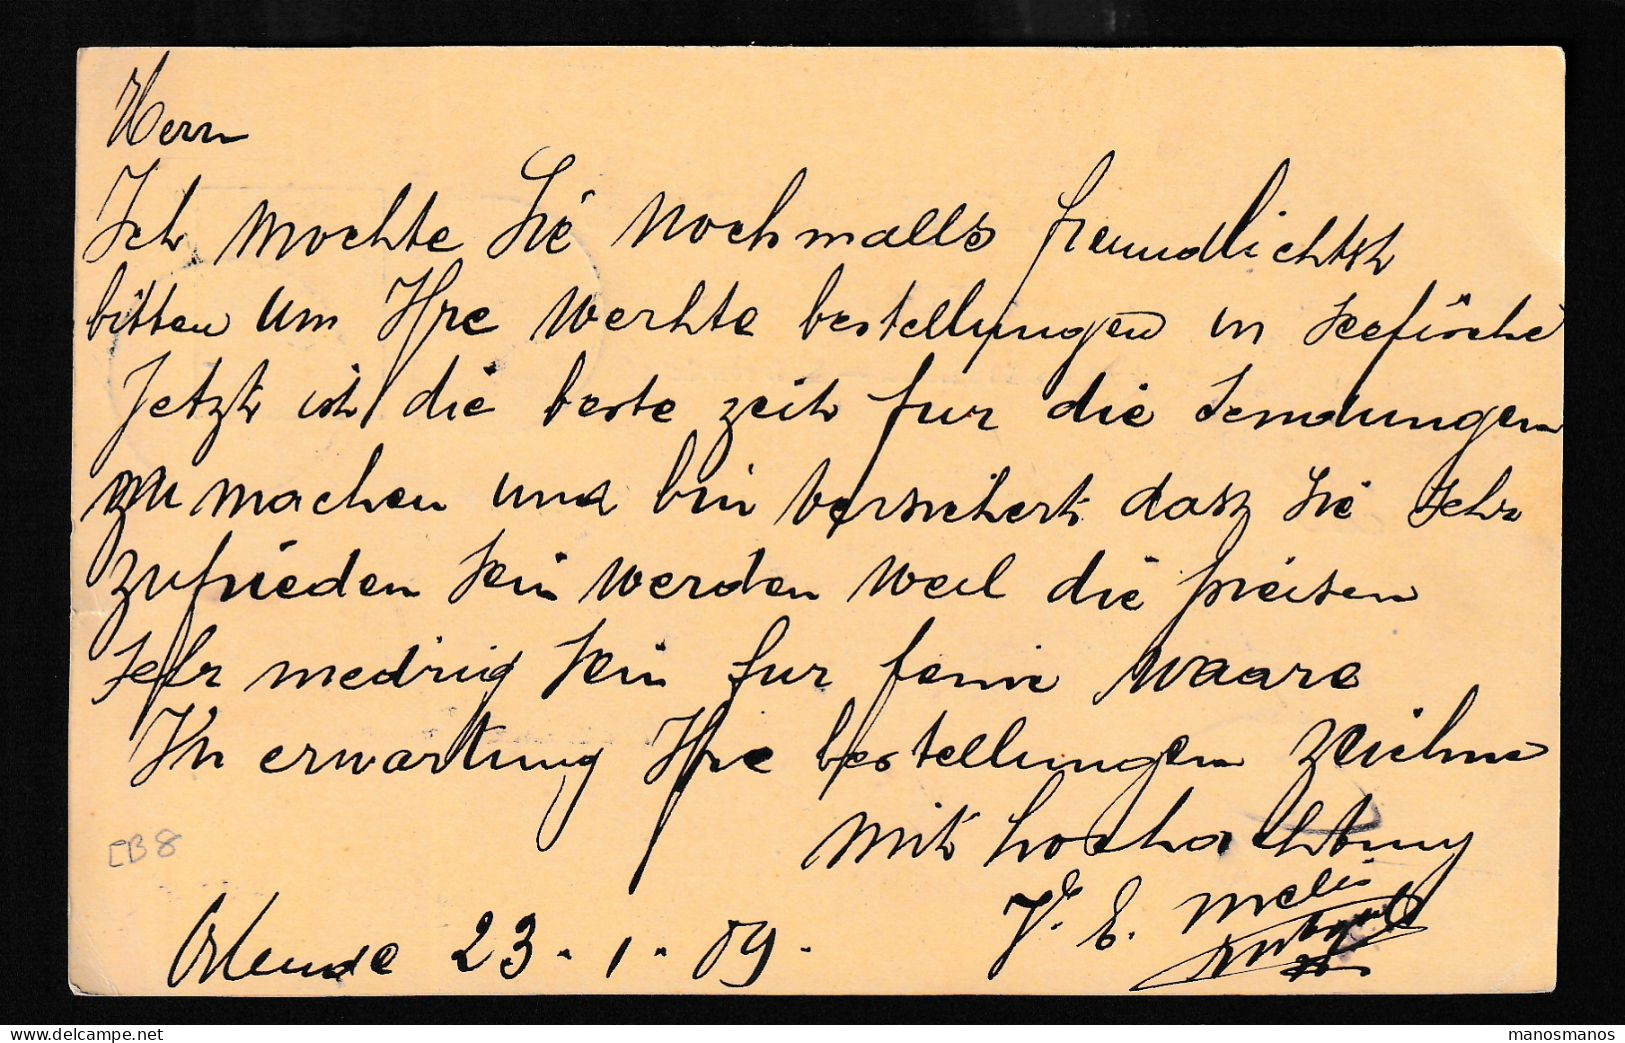 Herr
Ich mochte Sie nochmalls freundlichtst
bitten um Ihre werhte bestellungen in Seefische
Jetzt ist die beste zeit fur die Sendungen
zu machen und bin versichert dasz Sie Sehr
zufrieden sein werden weil die preisen
Sehr niedrig sein fur feine waare
In erwartung Ihre bestellungen zeichne
mit hochachtung
Ve. E. Melis
Ostende 23.1.09.
EB8
manosmanos